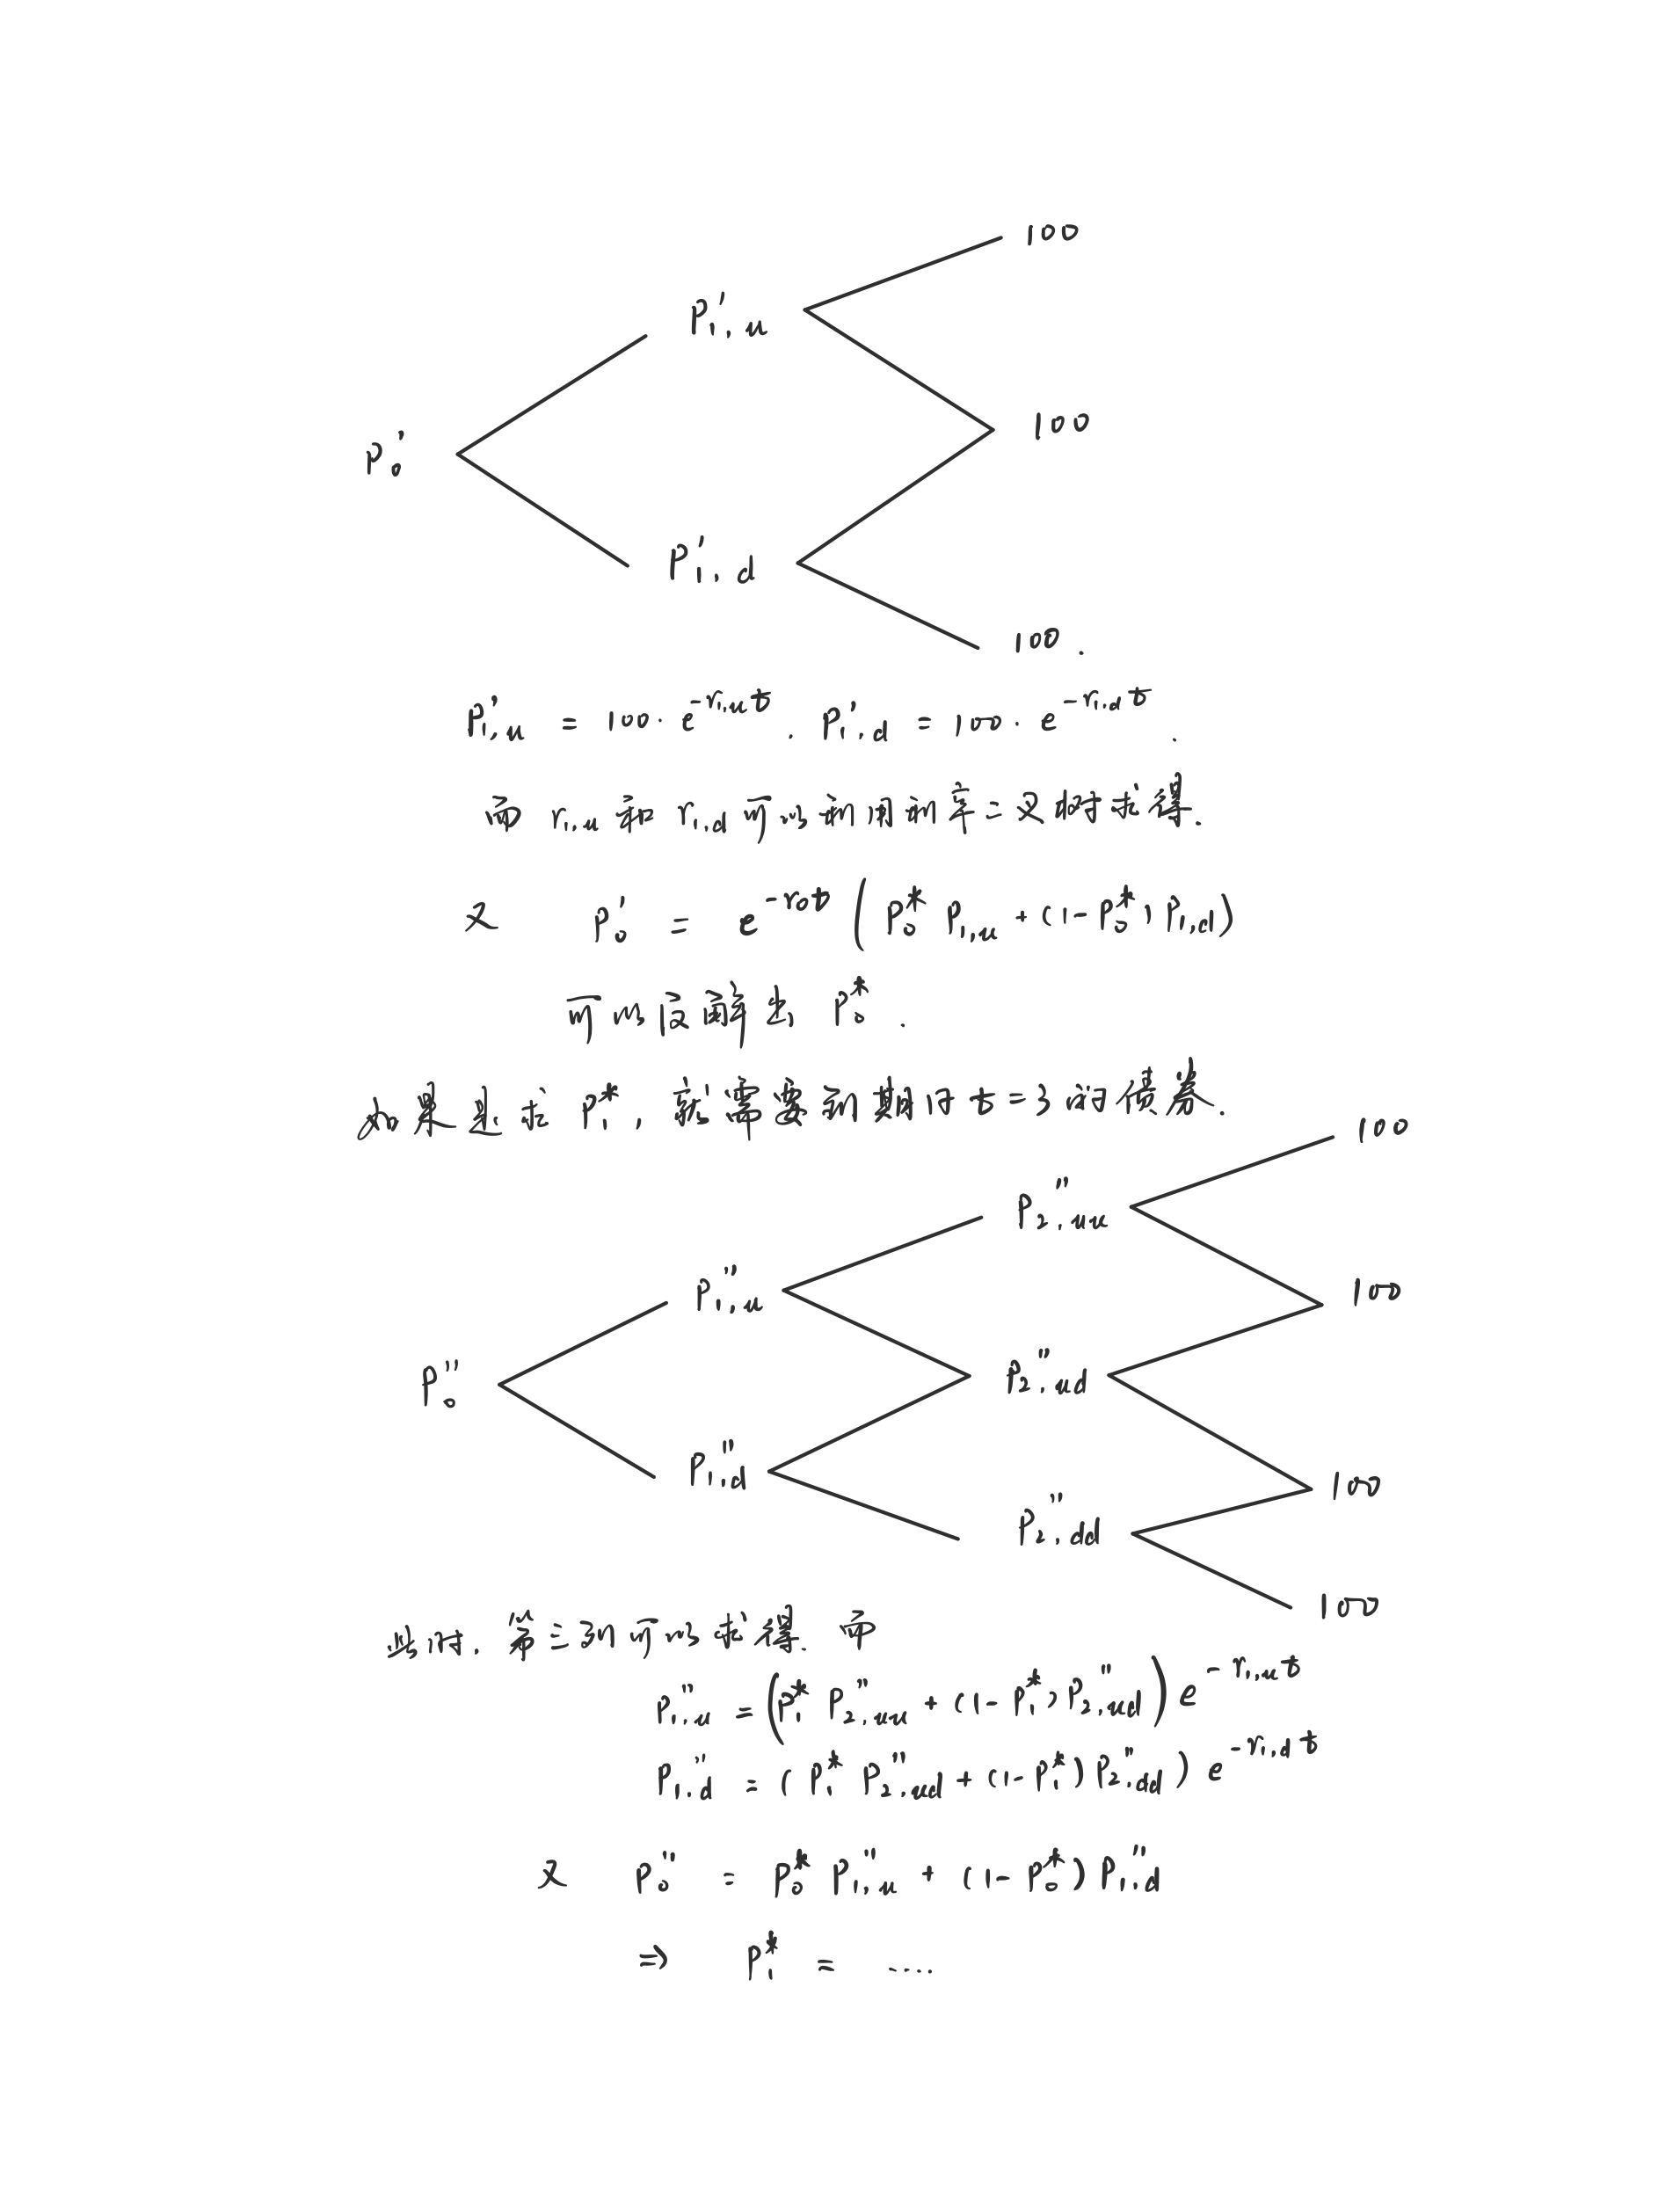 100
P'₁,u
100
P'₀
P'₁,d
100.
P'₁,u = 100·e^{-r₁,u t}. P'₁,d = 100·e^{-r₁,d t}.
而 r₁,u 和 r₁,d 可以利用利率二叉树求得.
又 P'₀ = e^{-r₀t}(P₀* P₁,u + (1-P₀*)P₁,d)
可以反解出 P₀*.
如果是求 P₁*, 就需要到期日 t=3 的债券.
100
P''₂,uu
P''₁,u
100
P''₀
P''₂,ud
P''₁,d
100
P''₂,dd
100
此时, 第三列可以求得. 而
P''₁,u = (P₁* P''₂,uu + (1-P₁*)P''₂,ud) e^{-r₁,u t}
P''₁,d = (P₁* P''₂,ud + (1-P₁*)P''₂,dd) e^{-r₁,d t}
又 P''₀ = P₀* P''₁,u + (1-P₀*) P''₁,d
⇒ P₁* = ....